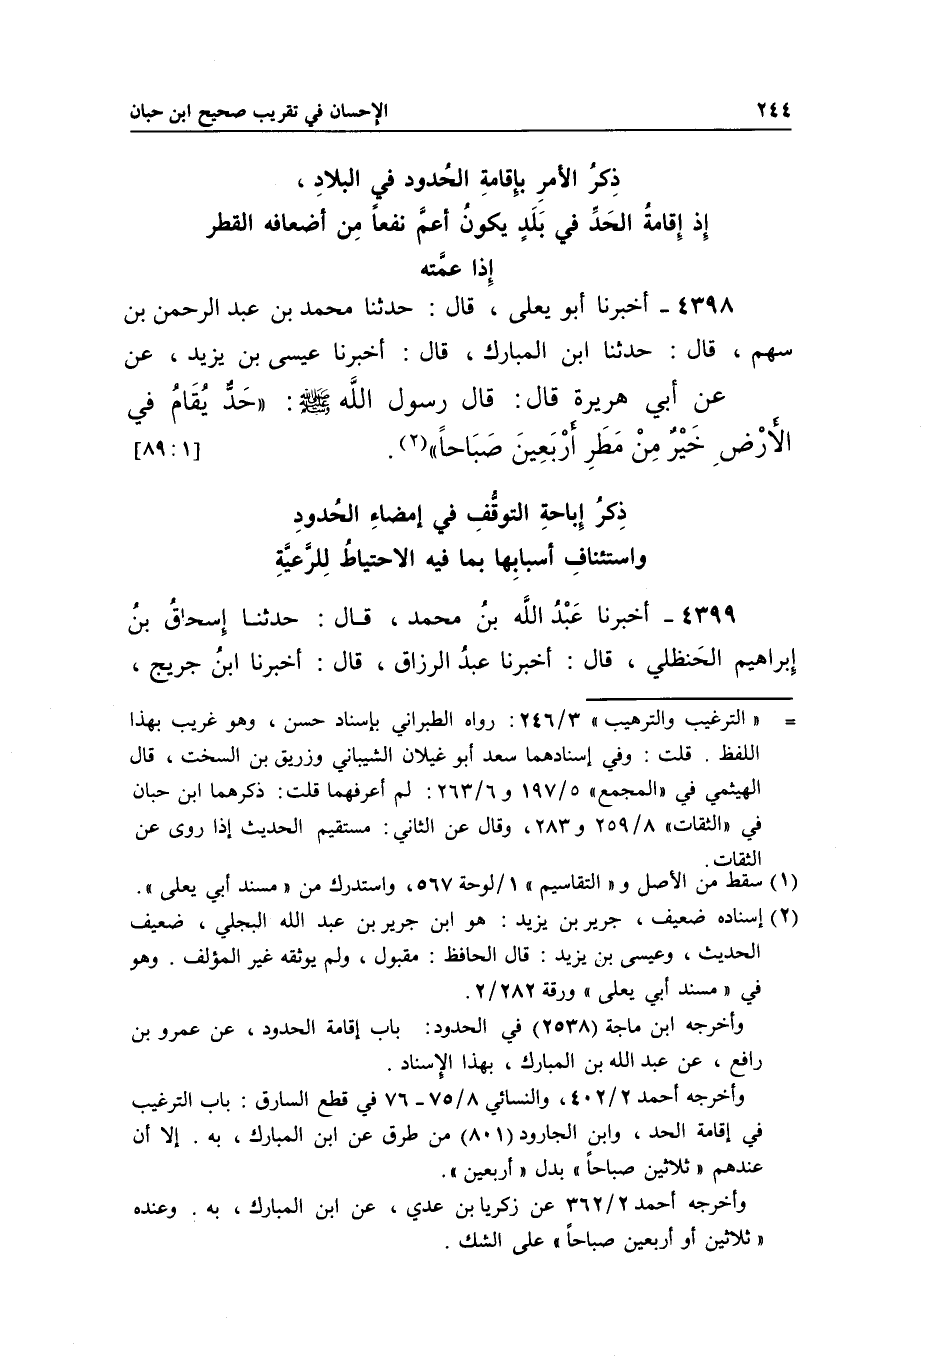 ٢٤٤ الإحسان في تقريب صحيح ابن حبان
ذِكرُ الأمرِ بِإقامةِ الحُدود في البلادِ ،
إذ إقامةُ الحَدِّ في بَلَدٍ يكونُ أعمَّ نفعاً مِن أضعافه القطر
إذا عمَّته
٤٣٩٨ ـ أخبرنا أبو يعلى ، قال : حدثنا محمد بن عبد الرحمن بن
سهم ، قال : حدثنا ابن المبارك ، قال : أخبرنا عيسى بن يزيد ، عن
عن أبي هريرة قال: قال رسول اللَّه ﷺ: «حَدٌّ يُقَامُ في
الأَرْضِ خَيْرٌ مِنْ مَطَرِ أَرْبَعِينَ صَبَاحاً»(٢). [١ : ٨٩]
ذِكرُ إباحةِ التوقُّفِ في إمضاءِ الحُدودِ
واستئنافِ أسبابِها بما فيه الاحتياطُ لِلرَّعيَّةِ
٤٣٩٩ ـ أخبرنا عَبْدُ اللَّه بنُ محمد ، قال : حدثنا إسحاقُ بنُ
إبراهيم الحَنظلي ، قال : أخبرنا عبدُ الرزاق ، قال : أخبرنا ابنُ جريج ،
= « الترغيب والترهيب » ٢٤٦/٣ : رواه الطبراني بإسناد حسن ، وهو غريب بهذا
اللفظ . قلت : وفي إسنادهما سعد أبو غيلان الشيباني وزريق بن السخت ، قال
الهيثمي في «المجمع» ١٩٧/٥ و ٢٦٣/٦ : لم أعرفهما قلت: ذكرهما ابن حبان
في «الثقات» ٢٥٩/٨ و ٢٨٣، وقال عن الثاني: مستقيم الحديث إذا روى عن
الثقات.
(١) سقط من الأصل و« التقاسيم » ١/لوحة ٥٦٧، واستدرك من « مسند أبي يعلى ».
(٢) إسناده ضعيف ، جرير بن يزيد : هو ابن جرير بن عبد الله البجلي ، ضعيف
الحديث ، وعيسى بن يزيد : قال الحافظ : مقبول ، ولم يوثقه غير المؤلف . وهو
في « مسند أبي يعلى » ورقة ٢/٢٨٢.
وأخرجه ابن ماجة (٢٥٣٨) في الحدود: باب إقامة الحدود ، عن عمرو بن
رافع ، عن عبد الله بن المبارك ، بهذا الإسناد .
وأخرجه أحمد ٤٠٢/٢، والنسائي ٧٥/٨ ـ ٧٦ في قطع السارق : باب الترغيب
في إقامة الحد ، وابن الجارود (٨٠١) من طرق عن ابن المبارك ، به . إلا أن
عندهم « ثلاثين صباحاً » بدل « أربعين ».
وأخرجه أحمد ٣٦٢/٢ عن زكريا بن عدي ، عن ابن المبارك ، به . وعنده
« ثلاثين أو أربعين صباحاً » على الشك .